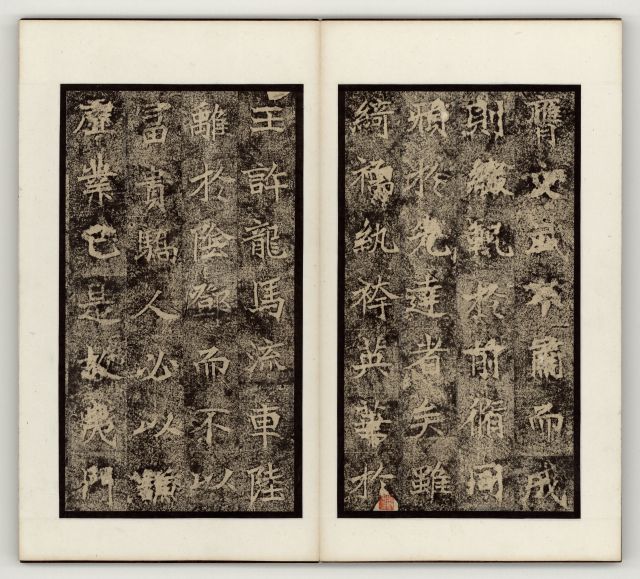 膺文武不肅而成
則綴軌於前脩同
於先達者矣雖
綺襦紈袴英華於
王許龍馬流車陸
離於陰鄧而不以
富貴驕人必以謙
虛業己是故夷門